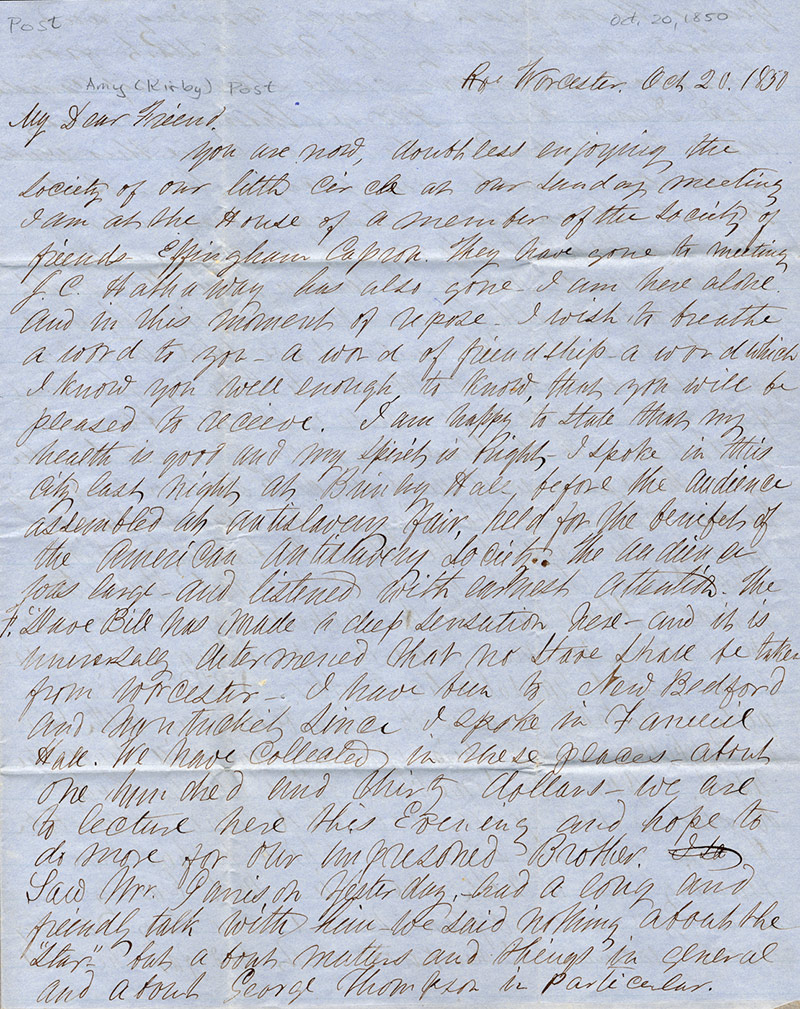 Post
Oct. 20, 1850
Amy (Kirby) Post
Worcester. Oct 20. 1850
My Dear Friend.
You are now, doubtless enjoying the
Society of our little circle at our Sunday meeting
I am at the House of a member of the Society of
friends Effingham Capron. They have gone to meeting
J. C. Hathaway has also gone. I am here alone.
and in this moment of repose - I wish to breathe
a word to you - a word of friendship - a word which
I know you well enough to know, that you will be
pleased to receive. I am happy to state that my
health is good and my spirit is Right - I spoke in this
city last night at Brinley Hall, before the audience
assembled at antislavery fair, held for the benifet of
the American antislavery Society. The audience
was large - and listened with earnest attention. The
F. Slave Bill has made a deep sensation here - and it is
universally determined that no slave shall be taken
from Worcester - I have been to New Bedford
and Nantucket since I spoke in Faneuil
Hall. We have collected in these places - about
one hundred and thirty dollars - we are
to lecture here this Evening and hope to
do more for our imprisoned Brother.
Saw Mr. Garrison yesterday - had a long and
friendly talk with him - we said nothing about the
"Star" - but about matters and things in general
and about George Thompson in particular.